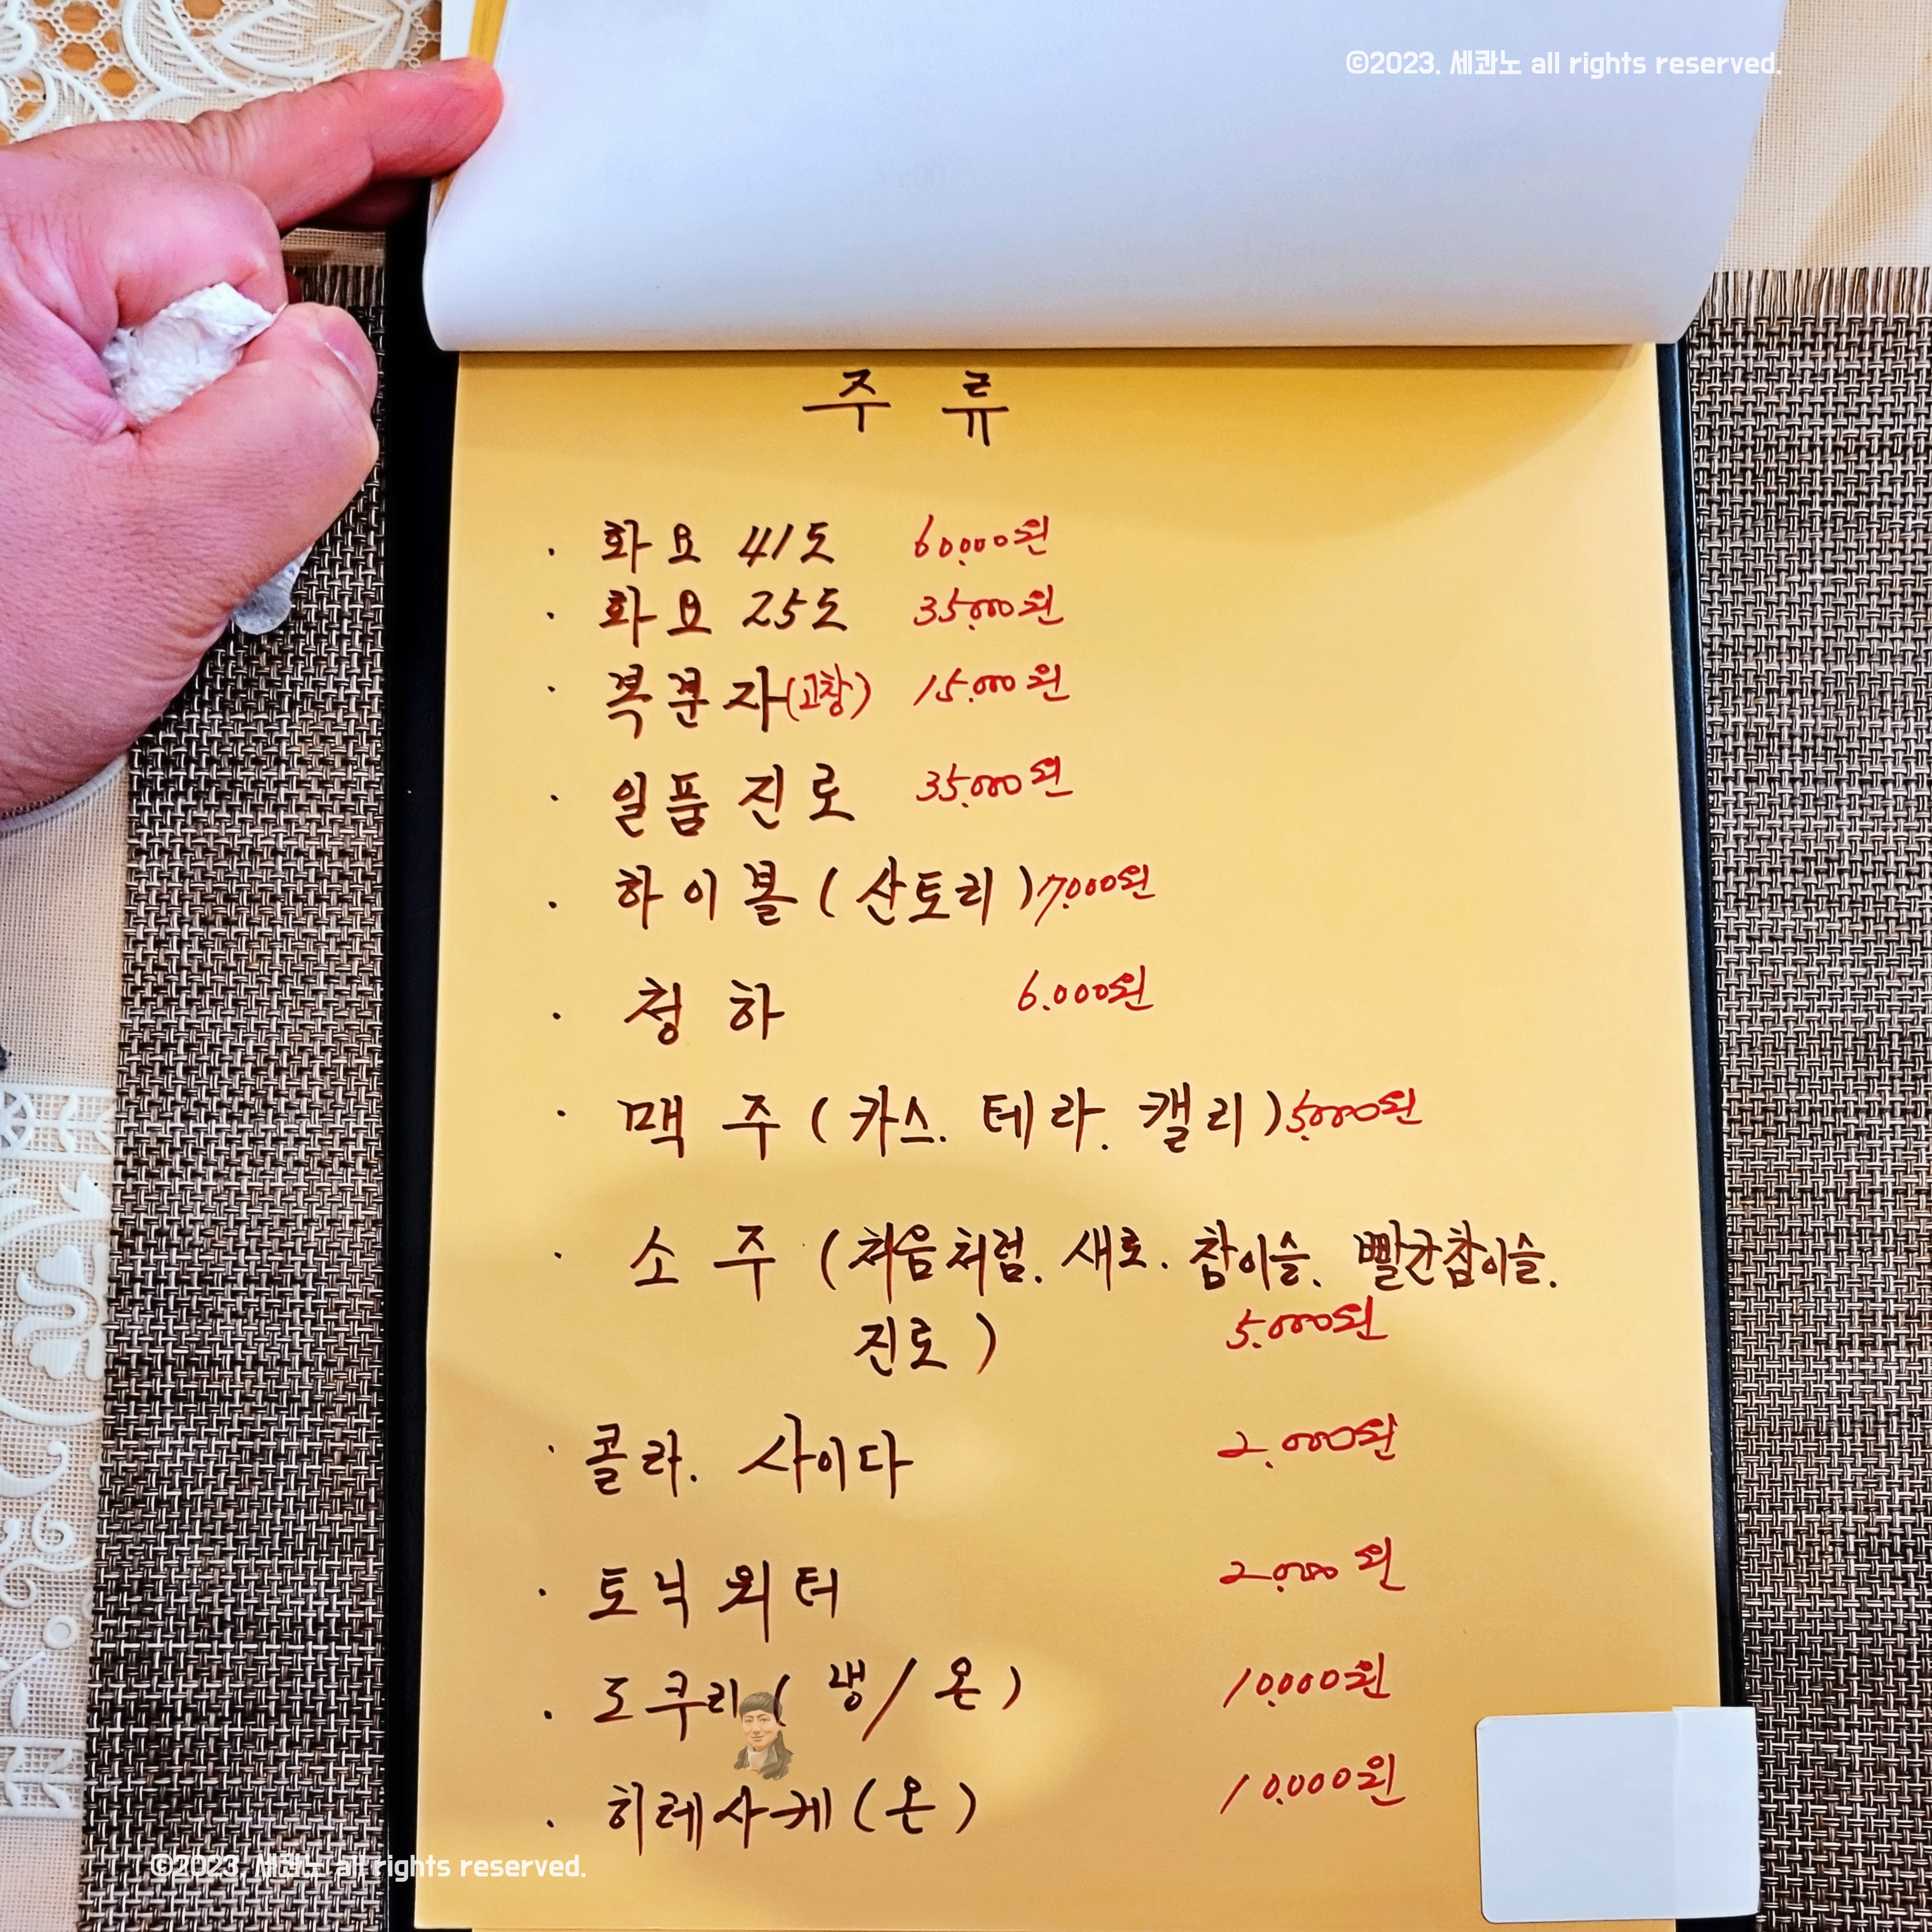 ©2023. 세콴노 all rights reserved.
주 류
· 화요 41도 60.000원
· 화요 25도 35.000원
· 복분자(고창) 15.000원
· 일품진로 35.000원
· 하이볼(산토리) 7.000원
· 청하 6.000원
· 맥주(카스. 테라. 캘리) 5.000원
· 소주(처음처럼. 새로. 참이슬. 빨간참이슬.
진로) 5.000원
· 콜라. 사이다 2.000원
· 토닉워터 2.000원
· 도쿠리(냉/온) 10.000원
· 히레사케(온) 10.000원
©2023. 세콴노 all rights reserved.